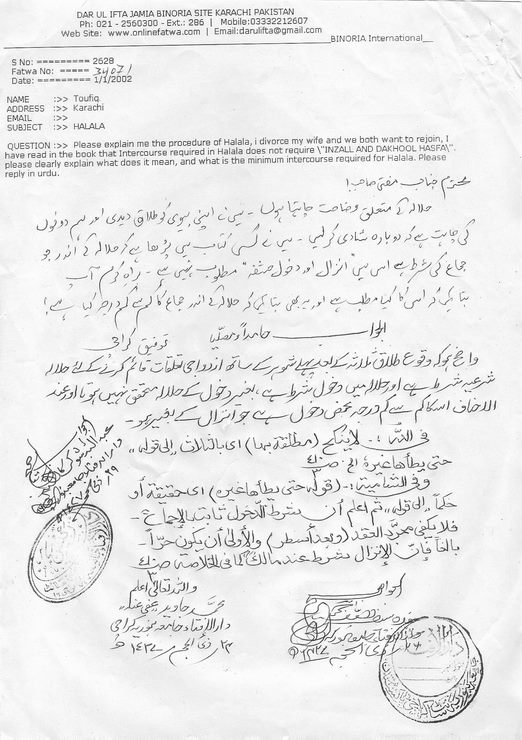 DAR UL IFTA JAMIA BINORIA SITE KARACHI PAKISTAN
Ph: 021 - 2560300 - Ext.: 286 | Mobile:03332212607
Web Site: www.onlinefatwa.com | Email:darulifta@gmail.com
__BINORIA International__
S No: ========= 2628
Fatwa No: ===== 34071
Date: ========= 1/1/2002
NAME :>> Toufiq
ADDRESS :>> Karachi
EMAIL :>>
SUBJECT :>> HALALA
QUESTION :>> Please explain me the procedure of Halala, i divorce my wife and we both want to rejoin, I
have read in the book that Intercourse required in Halala does not require \"INZALL AND DAKHOOL HASFA\".
please clearly explain what does it mean, and what is the minimum intercourse required for Halala. Please
reply in urdu.
محترم جناب مفتی صاحب!
حلالہ کے متعلق وضاحت چاہتا ہوں۔ میں نے اپنی بیوی کو طلاق دیدی اور ہم دونوں
کی چاہت ہے کہ دوبارہ شادی کرلیں۔ میں نے کسی کتاب میں پڑھا ہے کہ حلالہ کے اندر جو
جماع کی شرط ہے اس میں "انزال اور دخول حشفہ" مطلوب نہیں ہے۔ براہ کرم آپ
بتائیں کہ اس کا کیا مطلب ہے اور یہ بھی بتائیں کہ حلالہ کے اندر جماع کا کم سے کم درجہ کیا ہے؟
توفیق کراچی
الجواب حامداً ومصلیا
واضح ہو کہ وقوع طلاق ثلاثہ کے بعد پہلے شوہر کے ساتھ ازدواجی تعلقات قائم کرنے کے لئے حلالہ
شرعیہ شرط ہے اور حلالہ میں دخول شرط ہے، بغیر دخول کے حلالہ متحقق نہیں ہوتا اور عند
الاحناف اس کا کم سے کم درجہ محض دخول ہے جو انزال کے بغیر ہو۔
فی : لاینکح (مطلقة بها) ای بالثلاث "إلی قوله"
حتی یطأها غیره الخ
وفی الشامیة: (قوله حتی یطأها غیره) ای حقیقة أو
حکماً "إلی قوله" ثم اعلم أن شرط الدخول ثابت بالإجماع۔
فلا یکفی مجرّد العقد (وبعد أسطر) والأولی أن یکون حرّاً
بالغاً فإن الإنزال شرط عند مالك کما فی الخلاصة
واللہ تعالی اعلم
محمد جاوید عفی عنہ
دار الافتاء جامعہ بنوریہ کراچی
الجواب